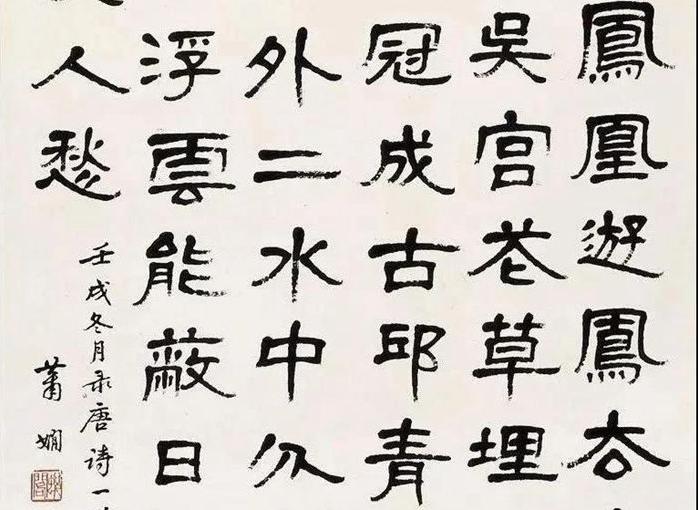 鳳凰遊鳳去
吳宮花草埋
冠成古邱青
外二水中分
浮雲能蔽日
人愁
壬戌冬月录唐诗一
蕭嫻